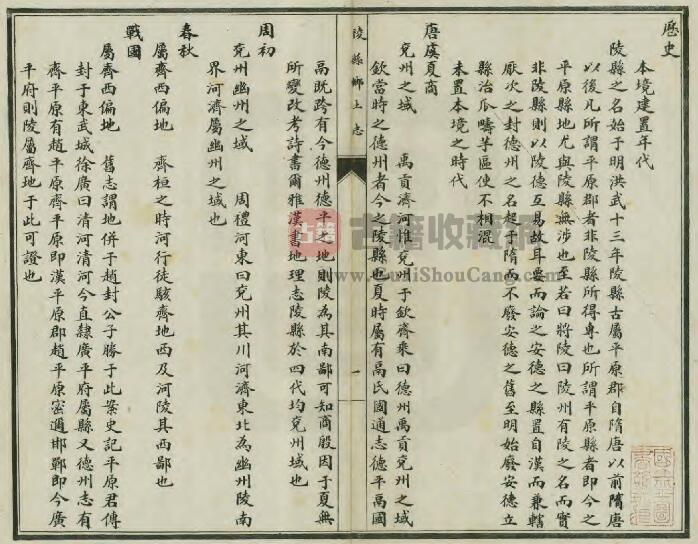 歷史
本境建置年代
陵縣之名始于明洪武十三年陵縣古屬平原郡自隋唐以前隋唐
以後凡所謂平原郡者非陵縣所得專也所謂平原縣者即今之
平原縣地尤與陵縣無涉也至若曰將陵曰陵州有陵之名而實
非陵縣則以陵德互易故耳要而論之安德之縣置自漢而兼轄
厭次之封德州之名起于隋而不廢安德之舊至明始廢安德立
縣治瓜疇芋區使不相混
未置本境之時代
唐虞夏商
兗州之域 禹貢濟河惟兗州于欽齊乘曰德州禹貢兗州之域
欽當時之德州者今之陵縣也夏時屬有鬲氏國通志德平鬲國
陵縣鄉土志
一
鬲既跨有今德州德平之地則陵為其南鄙可知商殷因于夏無
所變改考詩書爾雅漢書地理志陵縣於四代均兗州域也
周初
兗州幽州之域 周禮河東曰兗州其川河濟東北為幽州陵南
界河濟屬幽州之域也
春秋
屬齊西偏地 齊桓之時河行徒駭齊地西及河陵其西鄙也
戰國
屬齊西偏地 舊志謂地併于趙封公子勝于此案史記平原君傳
封于東武城徐廣曰清河清河今直隸廣平府屬縣又德州志有
齊平原有趙平原齊平原即漢平原郡趙平原密邇邯鄲即今廣
平府則陵屬齊地于此可證也
古籍收藏網
www.GuJiShouCang.com